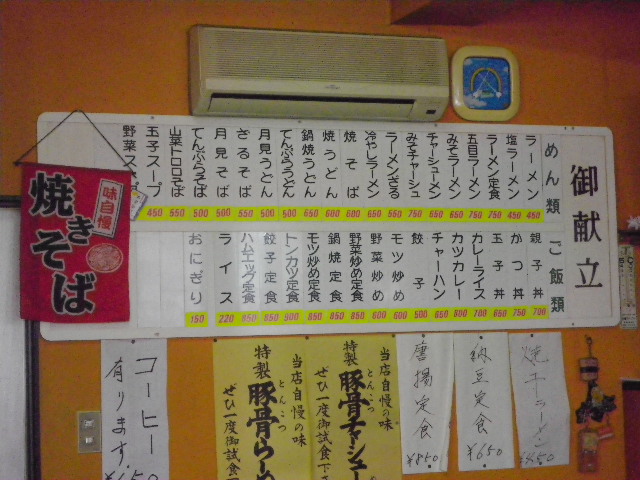 御献立
めん類
ラーメン 450
塩ラーメン 450
ラーメン定食 750
五目ラーメン 750
みそラーメン 600
チャーシューメン 650
みそチャーシュー 750
ラーメンざる 550
冷やしラーメン 650
焼そば 600
焼うどん 600
鍋焼うどん 650
てんぷらうどん 500
月見うどん 500
ざるそば 550
月見そば 500
てんぷらそば 500
山菜トロロそば 550
玉子スープ 450
野菜スープ
ご飯類
親子丼 700
かつ丼 750
玉子丼 650
カレーライス
カツカレー 800
チャーハン
餃子 500
モツ炒め
野菜炒め
野菜炒め定食 850
鍋焼定食 850
モツ炒め定食 850
トンカツ定食 900
餃子定食 850
ハムエッグ定食 850
ライス 220
おにぎり 150
味自慢
焼きそば
コーヒー
有ります
当店自慢の味
特製 豚骨らーめ
とんこつ
ぜひ一度御試食
当店自慢の味
特製 豚骨チャーシュー
とんこつ
ぜひ一度御試食下さ
唐揚定食
¥850
納豆定食
¥650
¥450